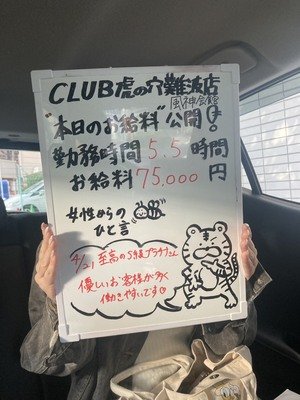 CLUB虎の穴難波店
風神会館
"本日のお給料"公開!
勤務時間5.5時間
お給料75,000円
女性からの
ひと言
4/21 至高のS級プラチナさん
優しいお客様が多く
働きやすいです